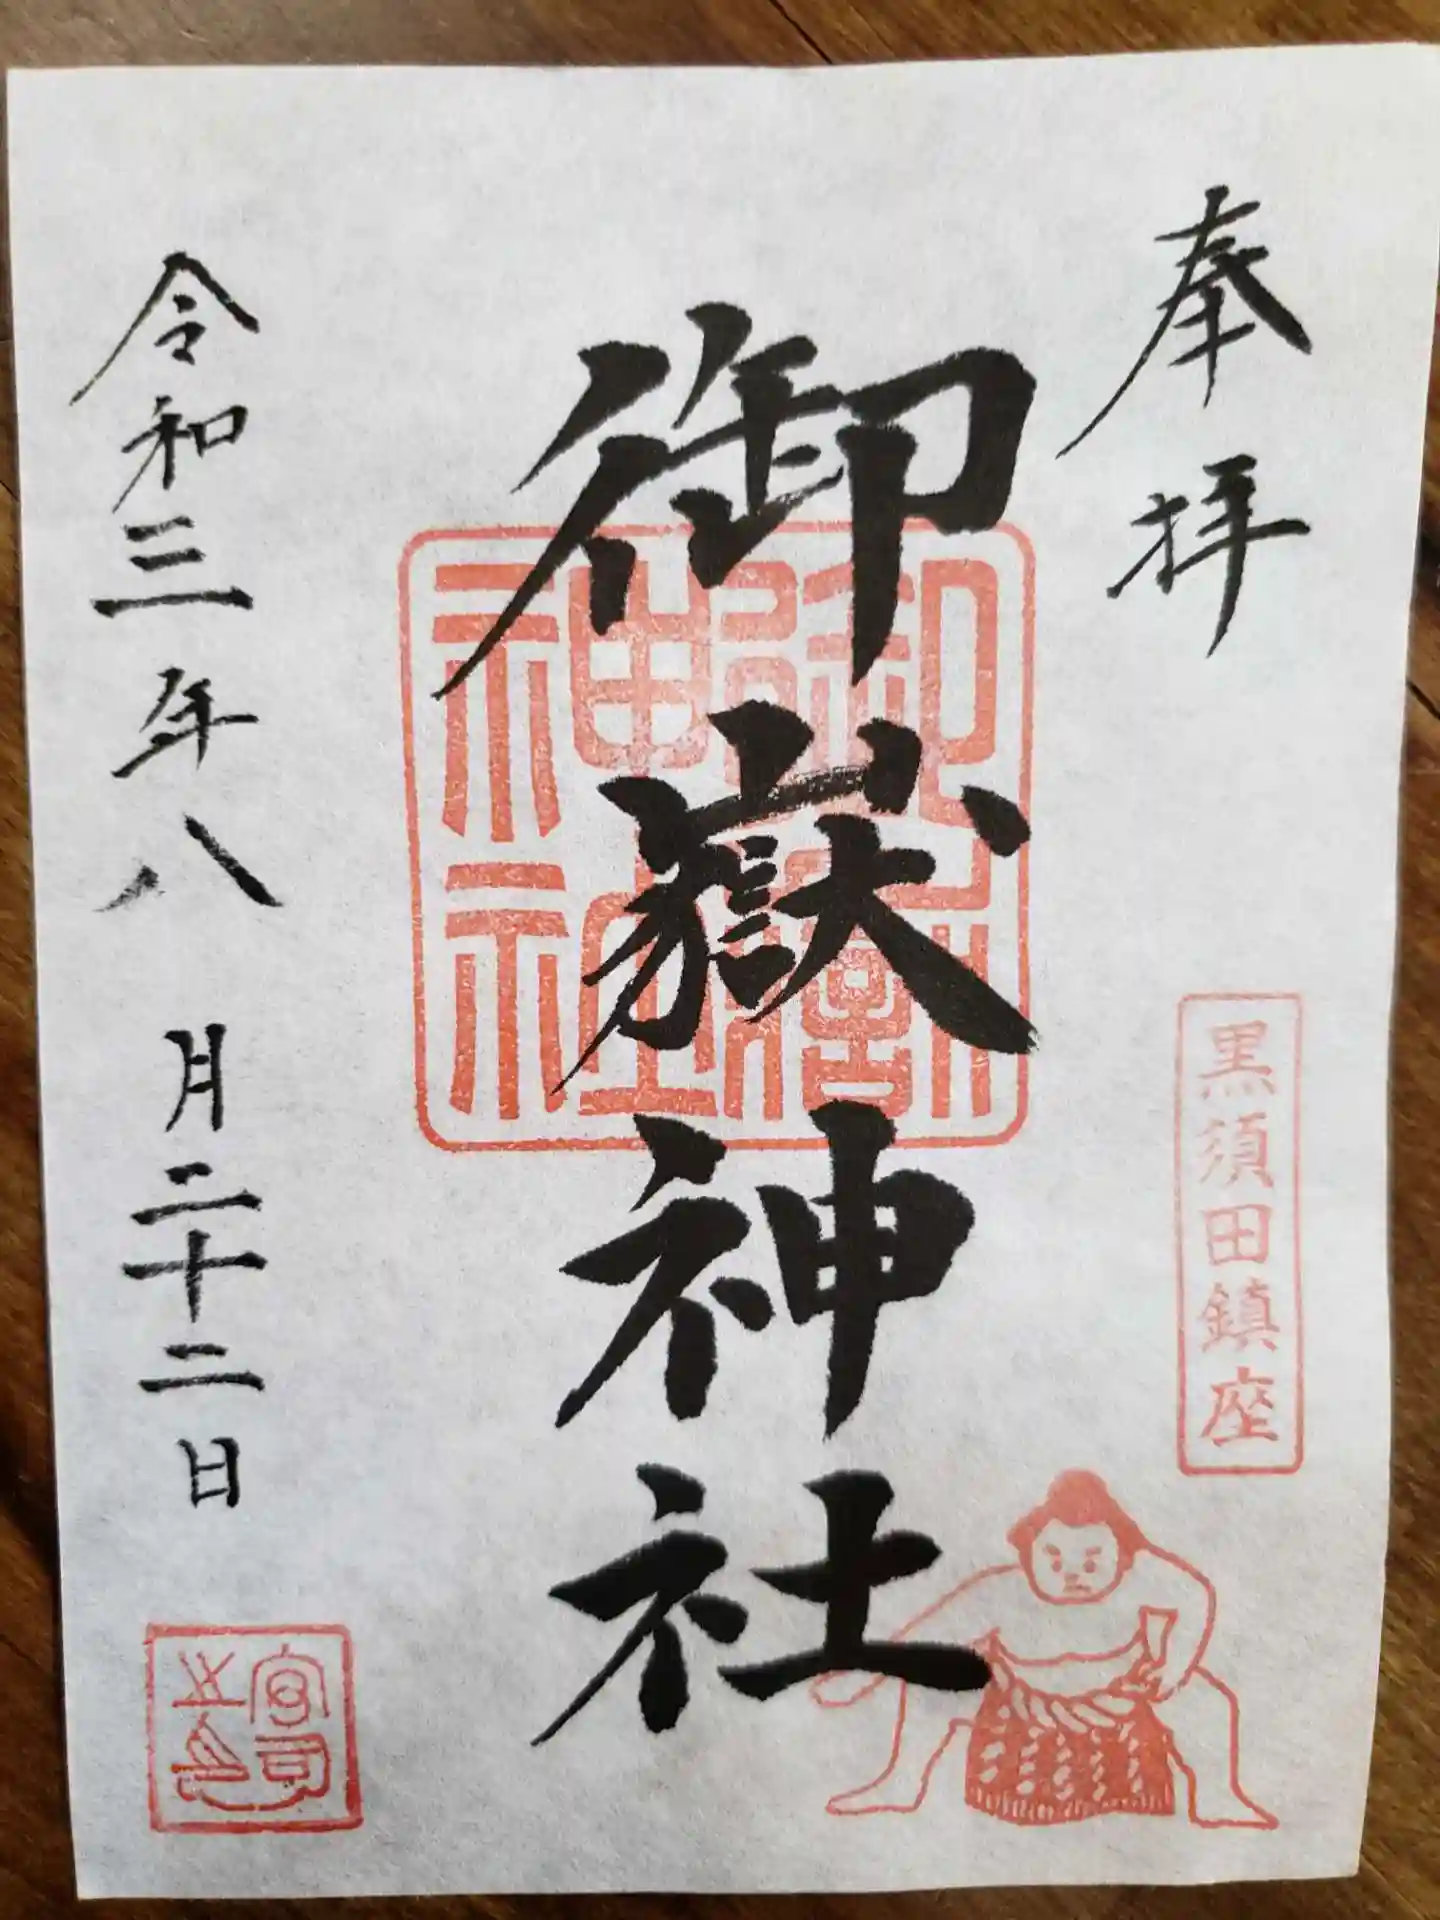 奉拝
黒須田鎮座
御嶽神社
御嶽神社
令和三年八月二十二日
宮司之印